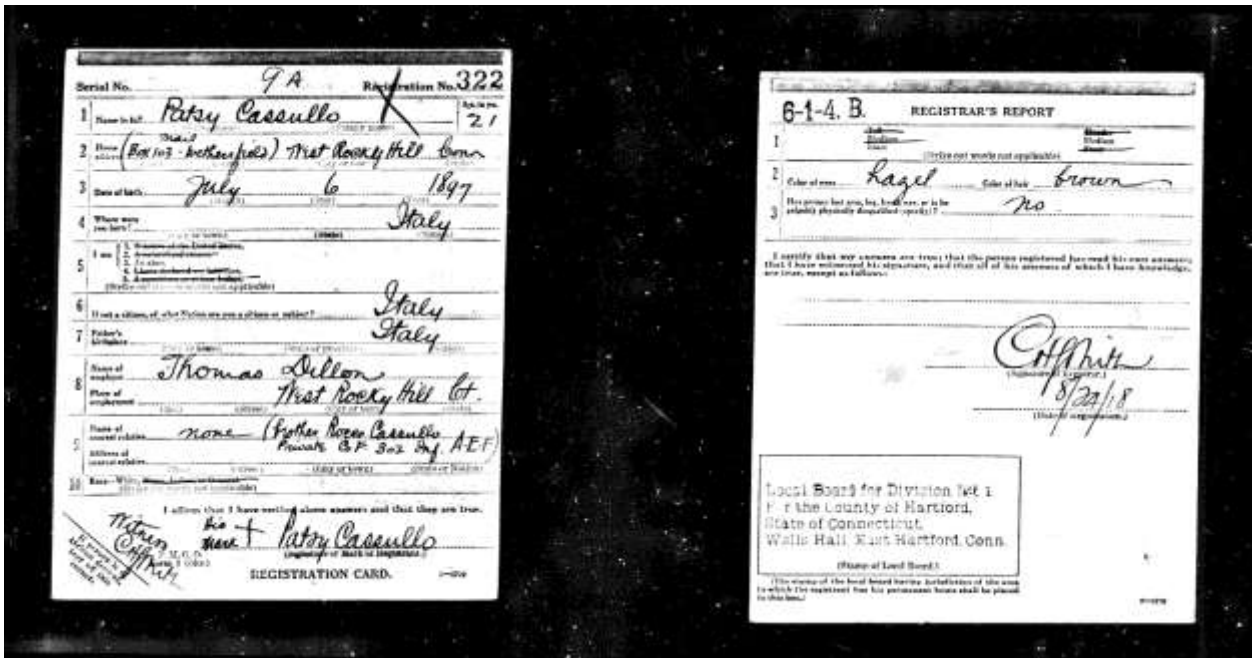 Serial No. 9A Registration No. 322
1 Name in full Patsy Cassullo Age, in yrs. 21
2 Home address (Mail Box 103 - Wethersfield) West Rocky Hill Conn
3 Date of birth July 6 1897
4 Where were you born? Italy
5 I am
1. A native of the United States,
2. A naturalized citizen
3. An alien,
4. I have declared my intention,
5.
(Strike out lines or words not applicable)
6 If not a citizen, of what Nation are you a citizen or subject? Italy
7 Father's birthplace Italy
8 Name of employer Thomas Dillon
Place of employment West Rocky Hill Ct.
9 Name of nearest relative none (brother Rocco Cassullo
Address of nearest relative Private Co F 302 Inf. A.E.F)
10 Race—White,
I affirm that I have verified above answers and that they are true.
Witness his mark + Patsy Cassullo
(Signature or Mark of Registrant.)
P. M. G. O.
REGISTRATION CARD.
6-1-4. B. REGISTRAR'S REPORT
1
(Strike out words not applicable)
2 Color of eyes hazel Color of hair brown
3 Has person lost arm, leg, hand, eye, or is he
palpably physically disqualified (specify)? no
I certify that my answers are true; that the person registered has read his own answers;
that I have witnessed his signature, and that all of his answers of which I have knowledge,
are true, except as follows:
(Signature of Registrar.)
8/24/18
(Date of registration.)
Local Board for Division No. 1
For the County of Hartford,
State of Connecticut,
Wells Hall, East Hartford, Conn.
(Stamp of Local Board.)
(The stamp of the local board having jurisdiction of the area
in which the registrant has his permanent home shall be placed
in this box.)